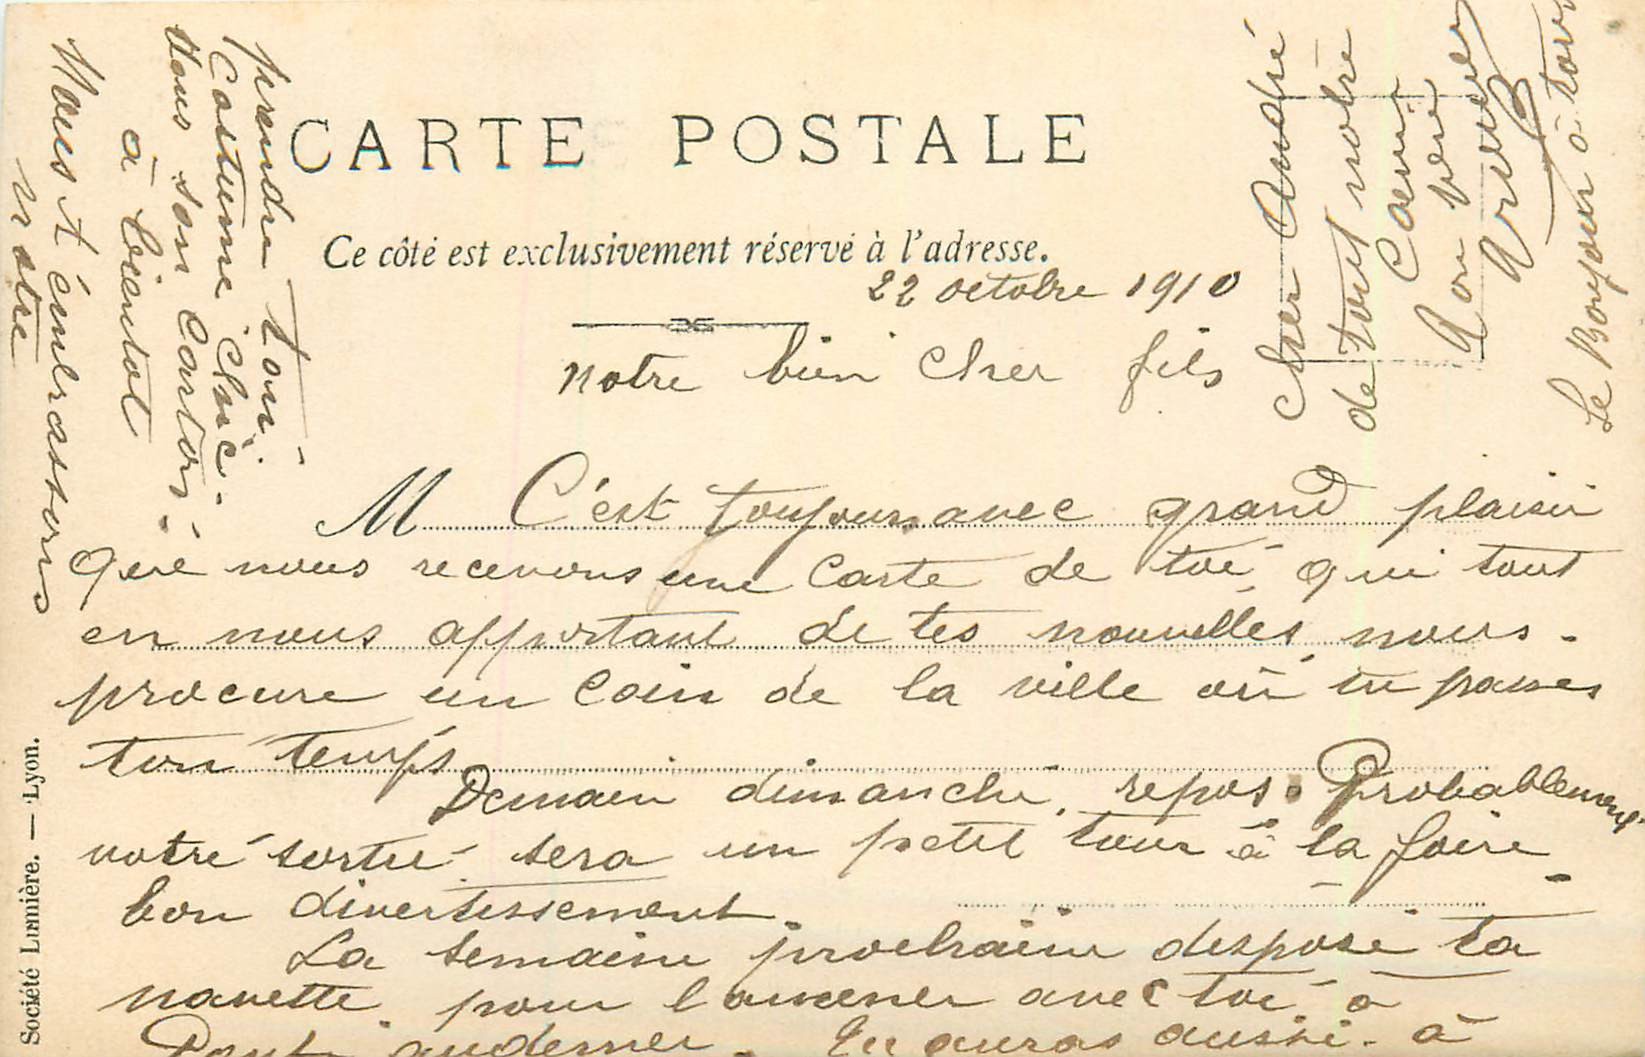 CARTE POSTALE
Ce côté est exclusivement réservé à l'adresse.
22 octobre 1910
Notre bien cher fils
M C'est toujours avec grand plaisir
que nous recevons une carte de toi qui tout
en nous apportant de tes nouvelles nous
procure un coin de la ville où tu passes
ton temps
Demain dimanche, repos. Probablement
notre sortie sera un petit tour à la foire
bon divertissement.
La semaine prochaine dispose ta
navette pour l'amener avec toi à
Pont audemer. Tu auras aussi à
prendre ton
costume chic
dans son carton.
à bientot
Nous t'embrassons
Notre
cher André
de tout notre
Coeur
Ton père
Le Bonjour à
Société Lumière. — Lyon.